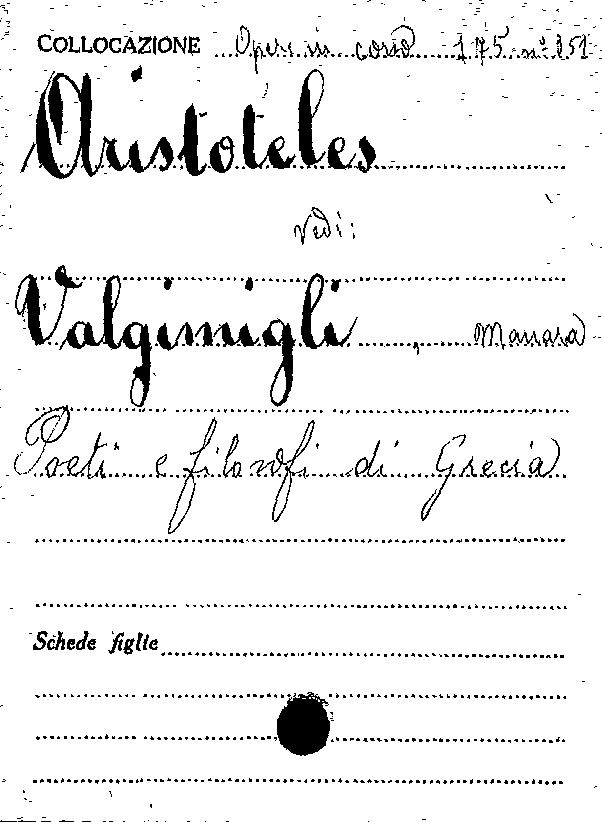 COLLOCAZIONE Opere in corso 175 n° 151
Aristoteles
Vedi:
Valgimigli, Manara
Poeti e filosofi di Grecia
Schede figlie